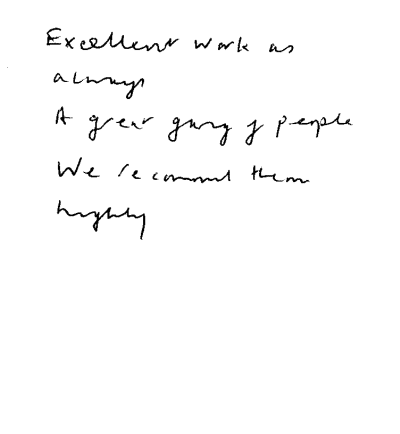 Excellent work as
always
A great gang of people
We recommend them
highly